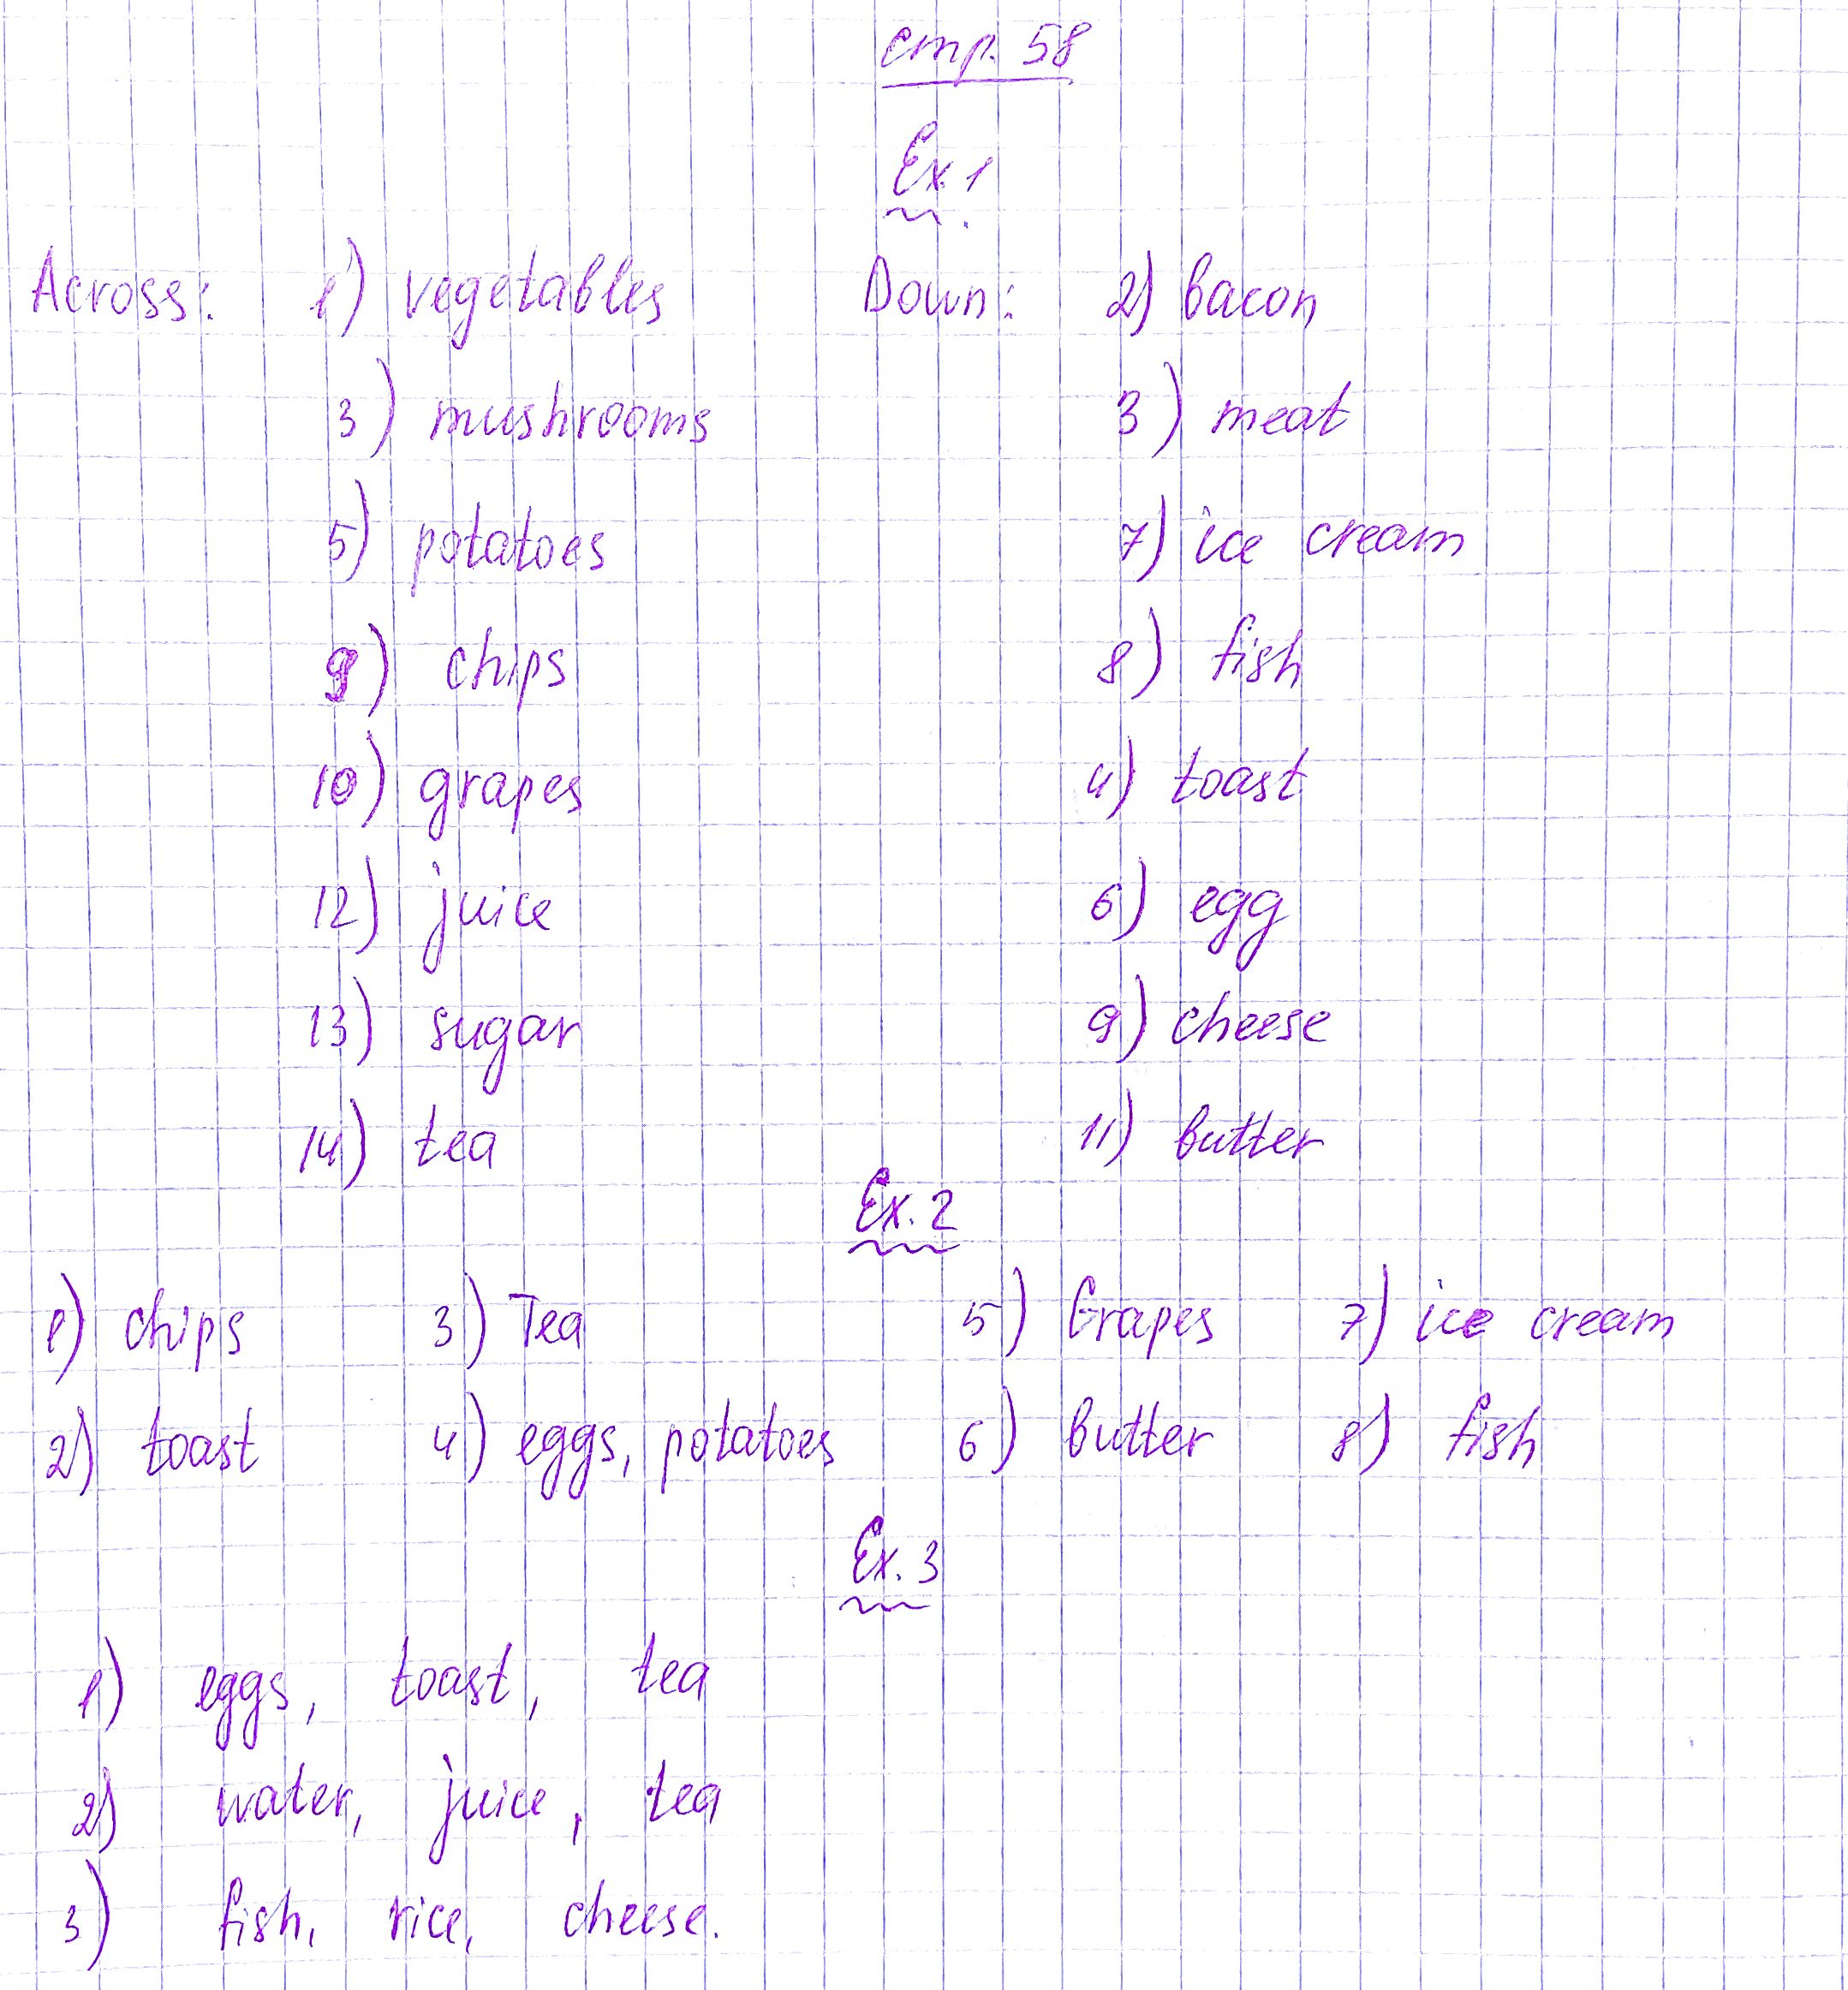 стр. 58
Ex. 1
Across: 1) vegetables Down: 2) bacon
3) mushrooms 3) meat
5) potatoes 7) ice cream
9) chips 8) fish
10) grapes 4) toast
12) juice 6) egg
13) sugar 9) cheese
14) tea 11) butter
Ex. 2
1) chips 3) Tea 5) Grapes 7) ice cream
2) toast 4) eggs, potatoes 6) butter 8) fish
Ex. 3
1) eggs, toast, tea
2) water, juice, tea
3) fish, rice, cheese.